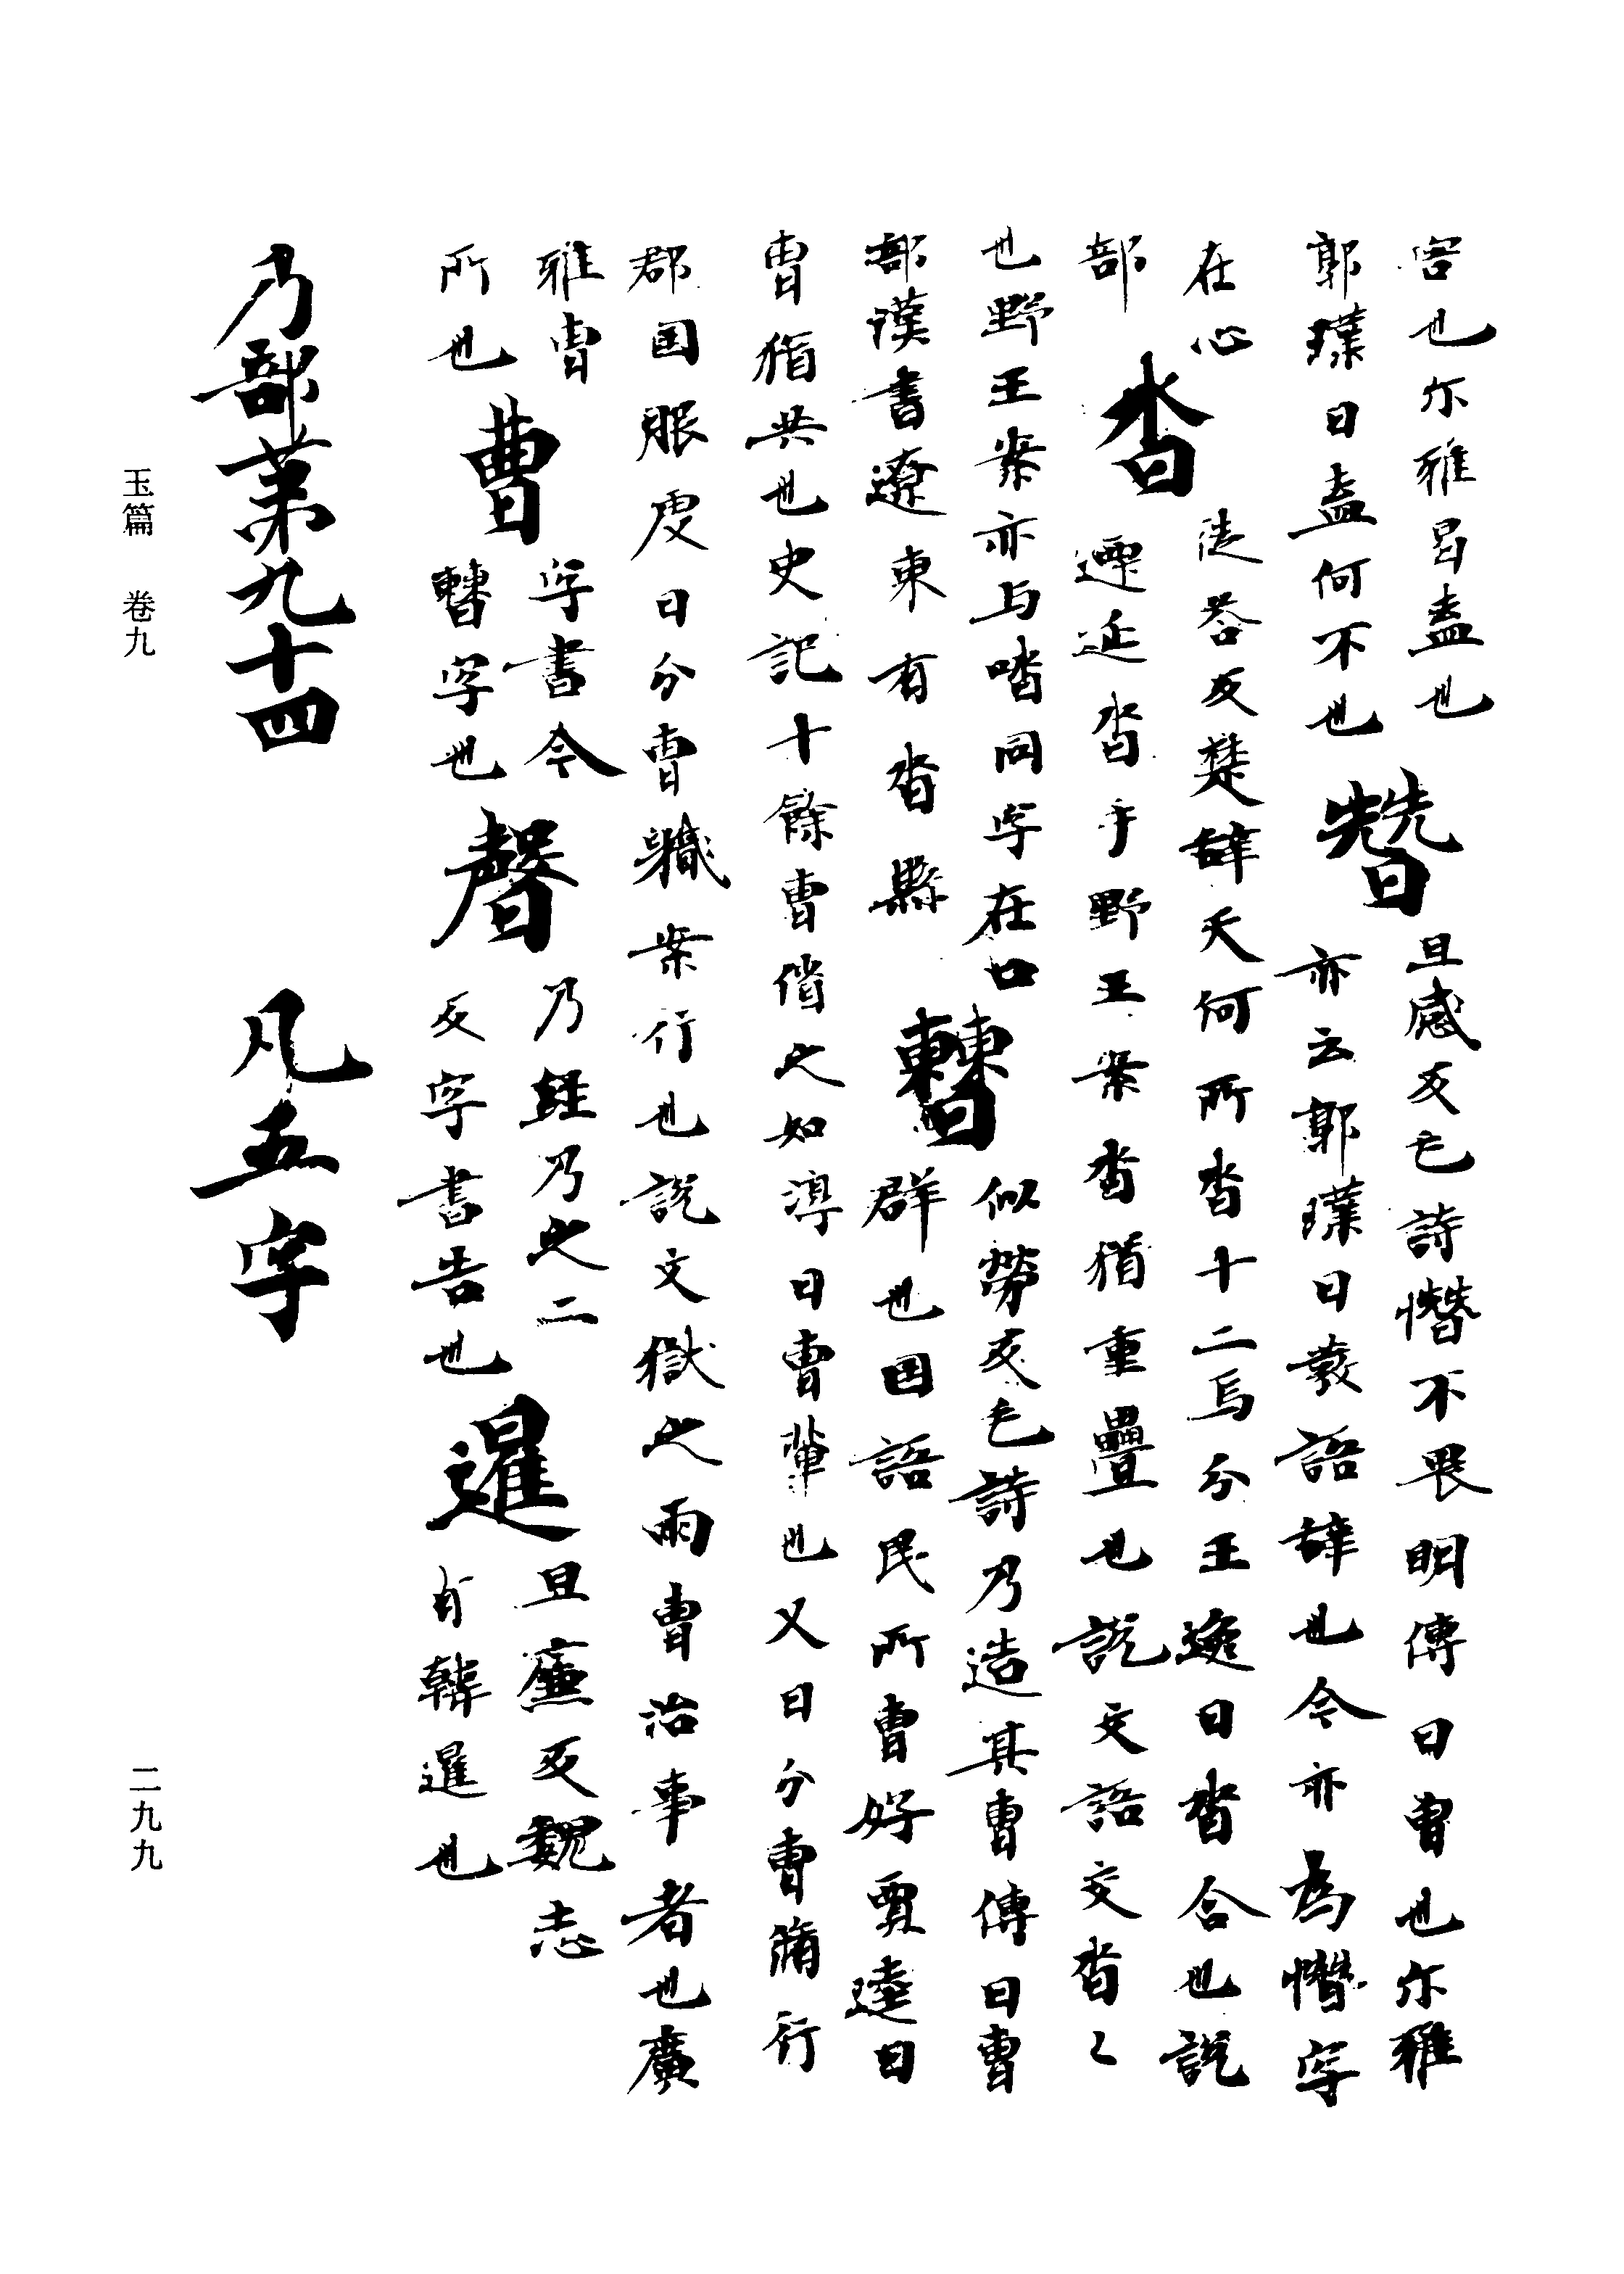 害也尓雅曷盍也
郭璞曰盍何不也
朁
且感反毛詩憯不畏明傳曰曹也尓雅
亦云郭璞曰發語辞也今亦為憯字
在心
部
沓
徒荅反楚辞天何所沓十二焉分王逸曰沓合也説
遝延沓手野王案沓猶重疊也説文語交沓〻
也野王案亦与喈同字在口
部漢書遼東有沓縣
𣍘
似勞反毛詩乃造其曹傳曰曹
群也国語民所曹好賈逵曰
曹猶共也史記十餘曹偹之如淳曰曹輩也又曰分曹簿行
郡国服虔曰分曹軄案行也説文獄之兩曹治事者也廣
雅曹
所也
曹
字書今
𣍘字也
乃経乃之二
反字書告也
且廉反魏志
有韓暹也
乃部苐九十四 凡五字
玉篇 卷九
二九九